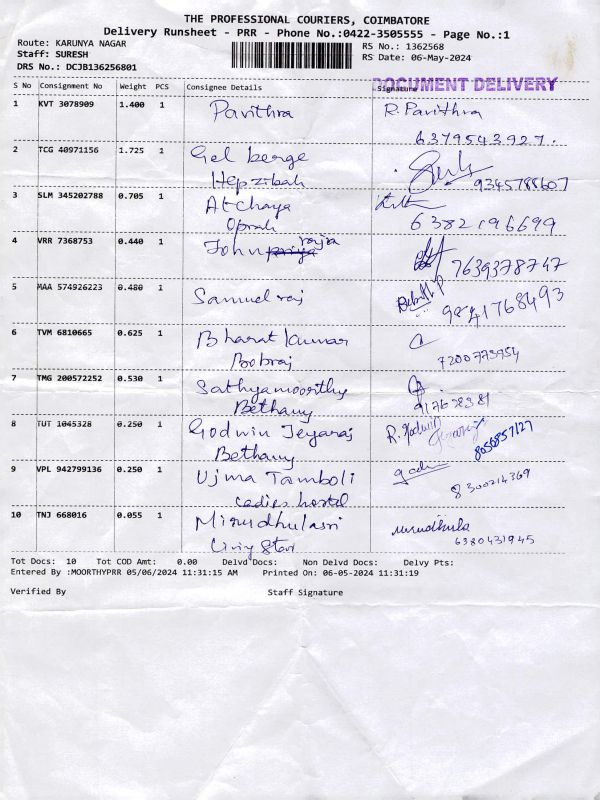 THE PROFESSIONAL COURIERS, COIMBATORE
Delivery Runsheet - PRR - Phone No.:0422-3505555 - Page No.:1
Route: KARUNYA NAGAR RS No.: 1362568
Staff: SURESH RS Date: 06-May-2024
DRS No.: DCJB136256801
DOCUMENT DELIVERY
S No Consignment No Weight PCS Consignee Details Signature
1 KVT 3078909 1.400 1 Pavithra R. Pavithra
6379543927.
2 TCG 40971156 1.725 1 Gel
Hepzibah 9345788607
3 SLM 345202788 0.705 1 Atchaya
Oprah 6382196699
4 VRR 7368753 0.440 1 John rajra
7639378747
5 MAA 574926223 0.480 1 Samuel raj
9841768493
6 TVM 6810665 0.625 1 Bharat Kumar
Bobraj 7200773954
7 TMG 200572252 0.530 1 Sathyamoorthy
Bethany
8 TUT 1045328 0.250 1 Godwin Jeyaraj R. Godwin
Bethany 8056857127
9 VPL 942799136 0.250 1 Ujma Tamboli
Ladies hostel 8300214369
10 TNJ 668016 0.055 1 Mirudhulasri mirudhula
Living Star 6380431945
Tot Docs: 10 Tot COD Amt: 0.00 Delvd Docs: Non Delvd Docs: Delvy Pts:
Entered By :MOORTHYPRR 05/06/2024 11:31:15 AM Printed On: 06-05-2024 11:31:19
Verified By Staff Signature